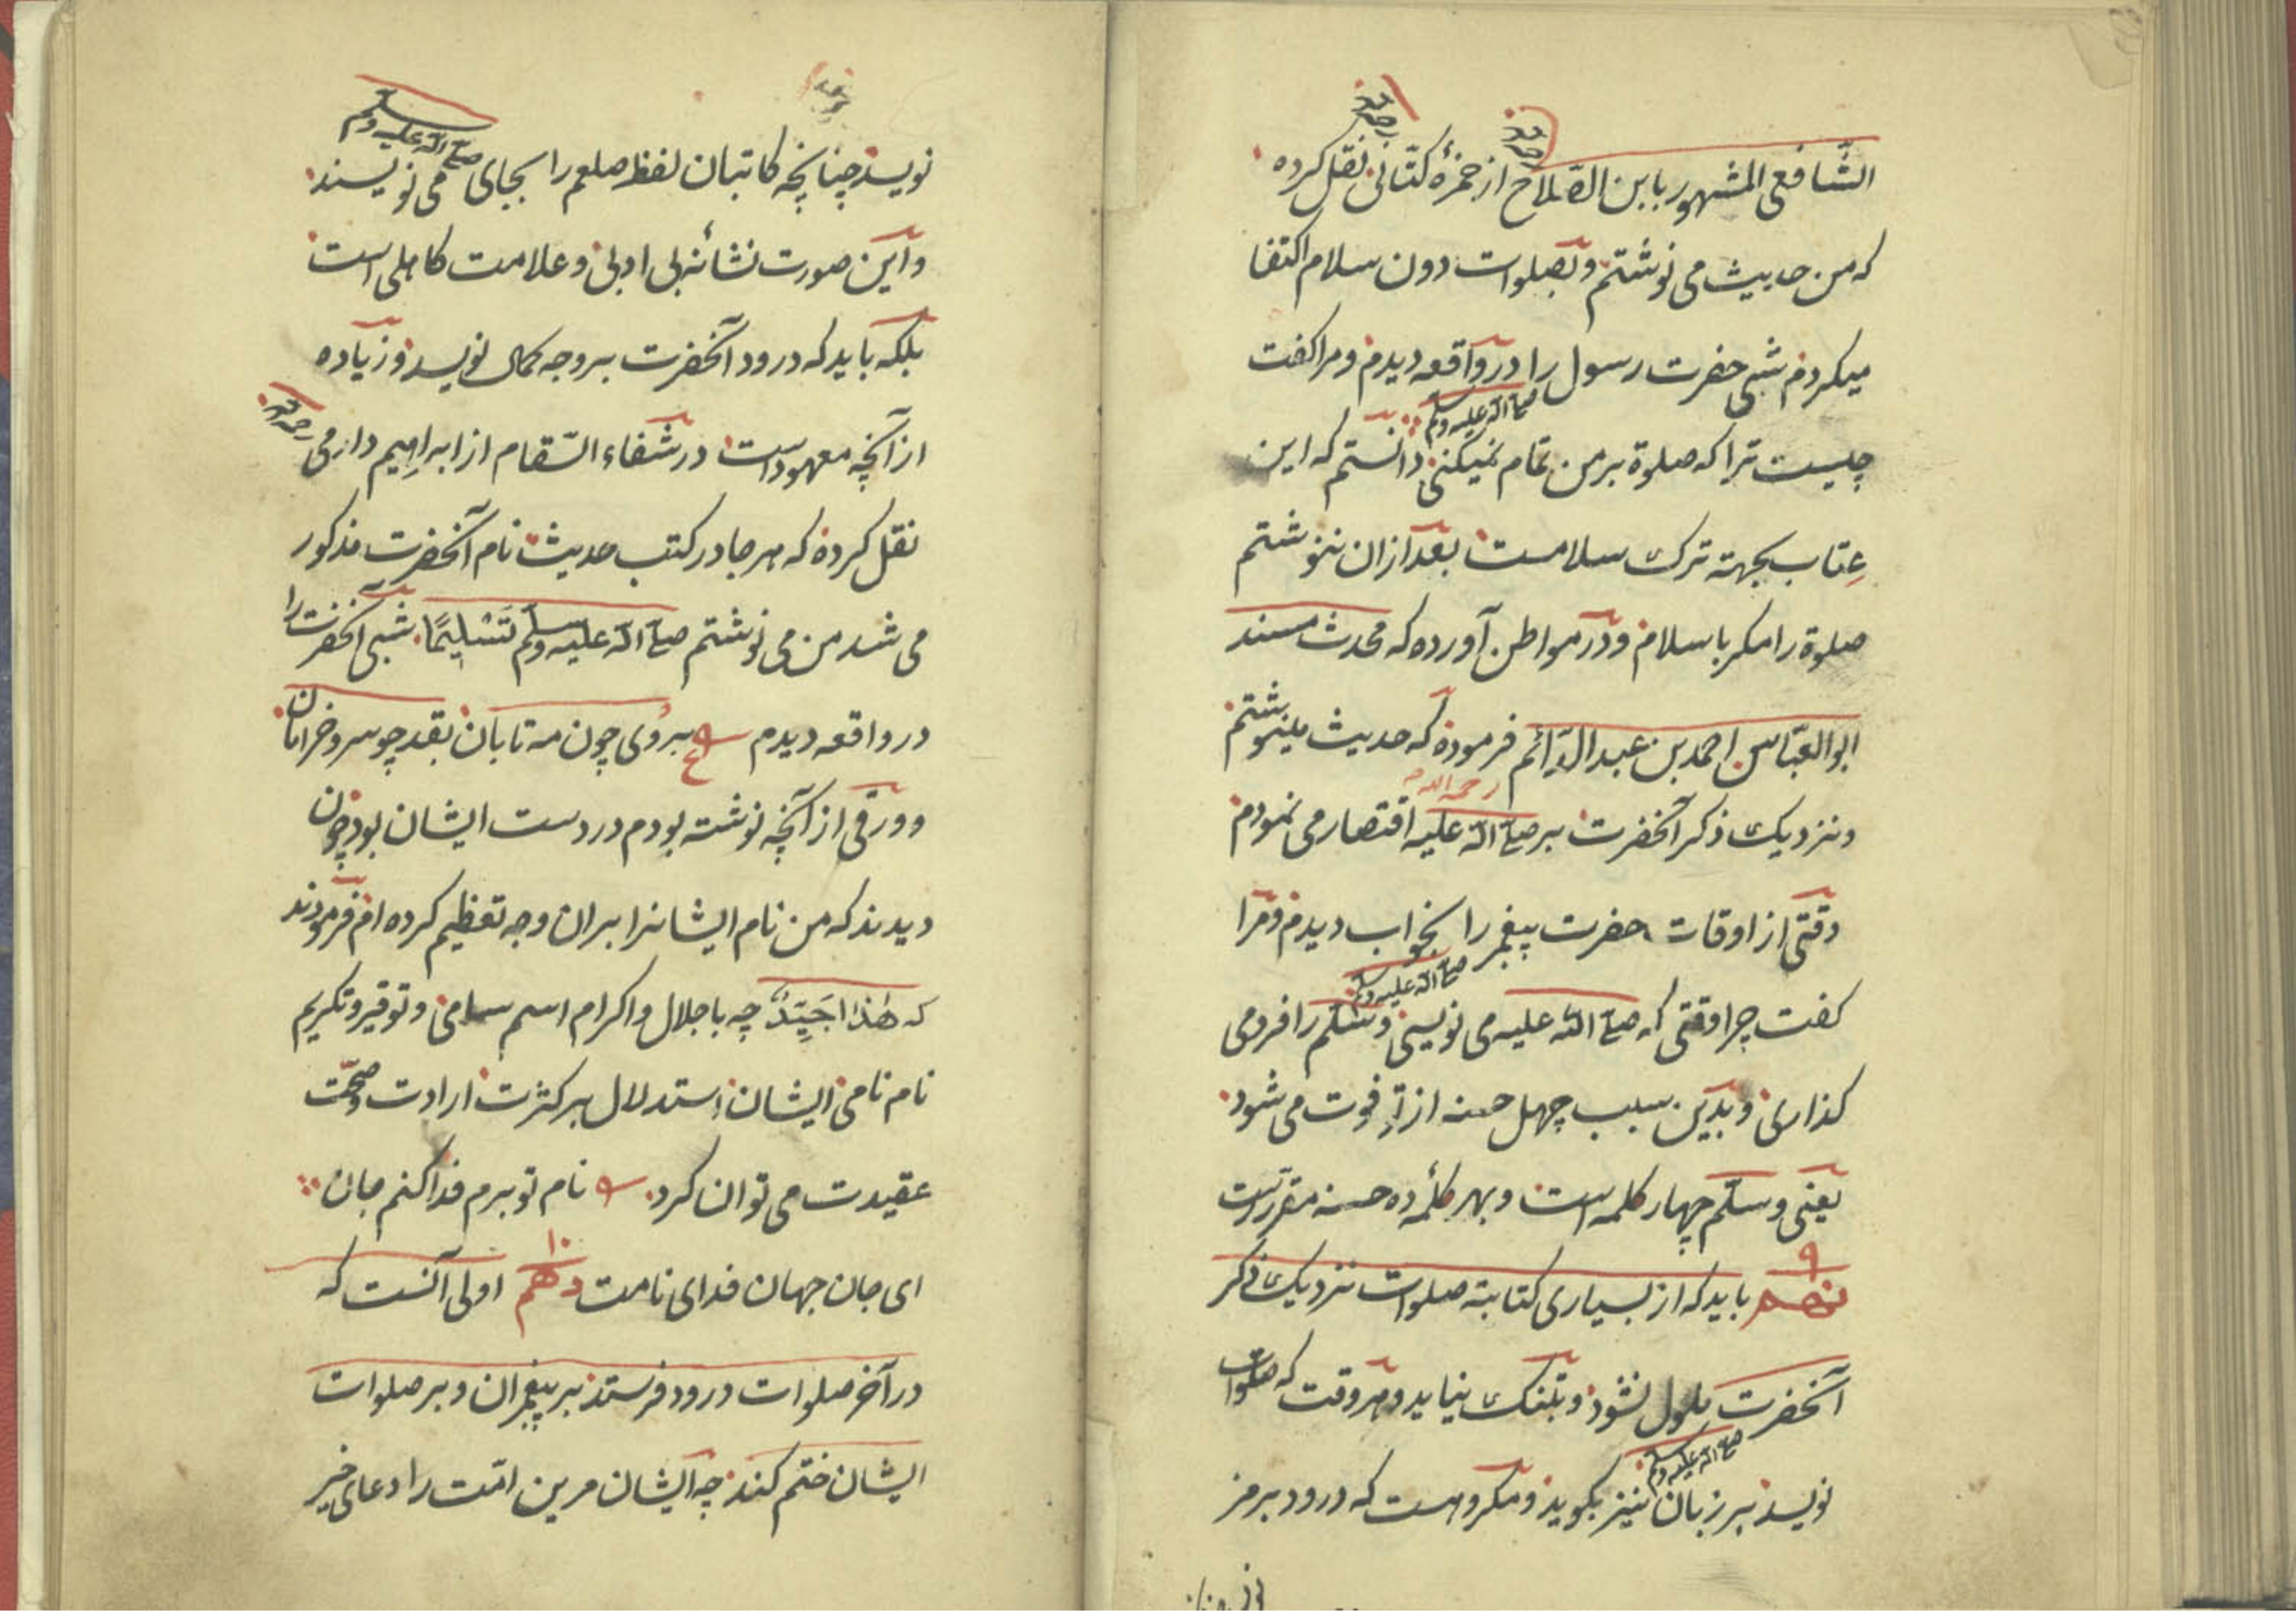 الشّافعی المشهور بابن الصّلاح از حمزهٔ کتّانی نقل کرده
رحمه الله
رحمه الله
که من حدیث می نوشتم و بصلوات دون سلام اکتفا
میکردم شبی حضرت رسول را در واقعه دیدم و مرا کفت
صلی الله علیه وسلم
چیست ترا که صلوة بر من تمام نمیکنی دانستم که این
عِتاب بجهته ترک سلامست بعد ازان ننوشتم
صلوة را مکر با سلام و در مواطن آورده که محدث مسند
ابوالعبّاس احمد بن عبدالدّائم فرموده که حدیث مینوشتم
رحمه الله
و نزدیک ذکر آنحضرت بر صلی الله علیه اقتصار می نمودم
وقتی از اوقات حضرت پیغمبر را بخواب دیدم و مرا
صلی الله علیه وسلم
کفت چرا وقتی که صلی الله علیه می نویسی وسلم را فرو می
کذاری و بدین سبب چهل حسنه از تو فوت می شود
یعنی وسلم چهار کلمه است و بهر کلمهٔ ده حسنه مقررست
۹
نهم باید که از بسیاری کتابته صلوات نزدیک ذکر
آنحضرت ملول نشود و بتنک نیاید و هر وقت که صلوات
صلی الله علیه وسلم
نویسد بر زبان نیز بکوید و مکروهست که درود بر مز
نویسد چنانچه کاتبان لفظ صلعم را بجای می نویسند
صلی الله علیه وسلم
و این صورت نشانهٔ بی ادبی و علامت کاهلی است
بلکه باید که درود آنحضرت بر وجه کمال نویسد و زیاده
از آنچه معهودست در شفاء السّقام از ابراهیم دارمی
رحمه الله
نقل کرده که هر جا در کتب حدیث نام آنحضرت مذکور
می شد من می نوشتم صلی الله علیه وسلم تَسْلِیمًا شبی آنحضرت را
در واقعه دیدم ع بروی چون مه تابان بقد چو سرو خرامان
و ورقی از آنچه نوشته بودم در دست ایشان بود چون
دیدند که من نام ایشانرا بران وجه تعظیم کرده ام فرمودند
که هٰذا جَیِّدٌ چه باجلال و اکرام اسم سامی و توقیر و تکریم
نام نامی ایشان استدلال بر کثرت ارادت و صحّت
عقیدت می توان کرد نام تو برم فدا کنم جان
ای جان جهان فدای نامت دهم اولی آنست که
۱۰
در آخر صلوات درود فرستد بر پیغمبران و بر صلوات
ایشان ختم کند چه ایشان مرین امّت را دعای خیر